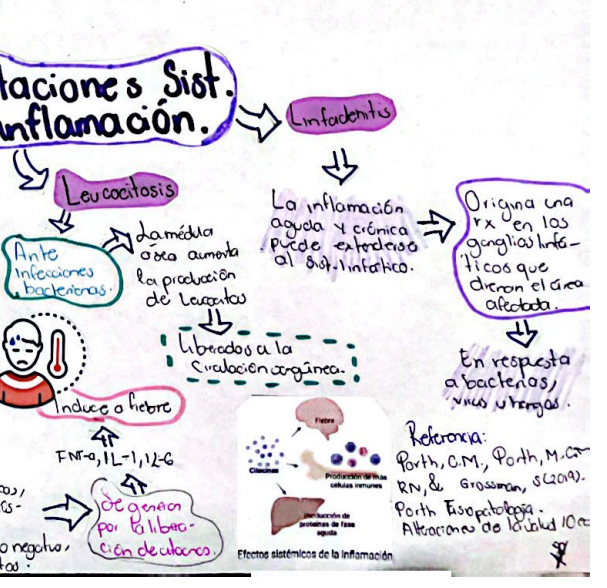 taciones Sist.
inflamación.
Linfadenitis
Leucocitosis
La inflamación
aguda y crónica
puede extenderse
al sist. linfático.
Origina una
rx en los
ganglios linfá-
ticos que
drenan el área
afectada.
En respuesta
a bacterias,
virus u hongos.
Ante
infecciones
bacterianas.
La médula
ósea aumenta
la producción
de leucocitos
Liberados a la
Circulación sangúinea.
Induce a fiebre
FNT-α, IL-1, IL-6
Se generan
por la libera-
ción de citocinas.
o negativo,
Fiebre
Citocinas
Producción de más
células inmunes
Producción de
proteínas de fase
aguda
Efectos sistémicos de la inflamación
Referencia:
Porth, C.M., Porth, M. C.M
RN, & Grossman, S (2019).
Porth Fisiopatología.
Alteraciones de la salud 10